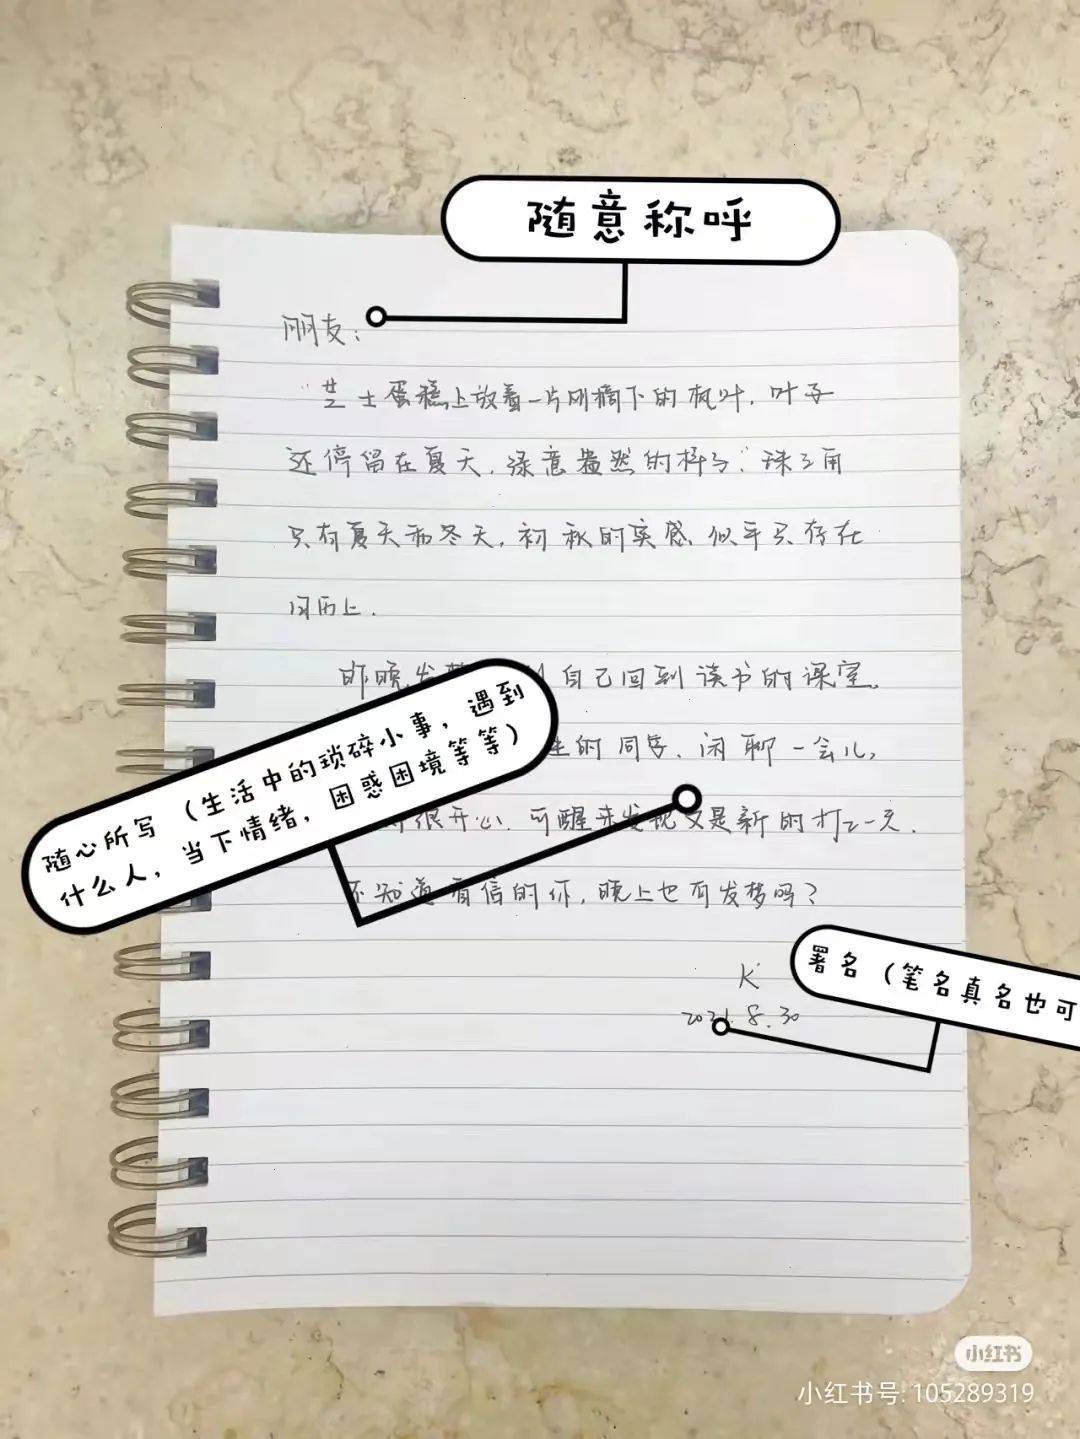 随意称呼
朋友：
"芝士蛋糕上放着一片刚摘下的枫叶，叶子
还停留在夏天，绿意盎然的样子"珠三角
只有夏天和冬天，初秋的实感似乎只存在
日历上．
昨晚发梦 自己回到读书的课室．
的同学．闲聊一会儿，
很开心．可醒来发现又是新的打工一天．
不知道看信的你，晚上也有发梦吗？
随心所写（生活中的琐碎小事，遇到
什么人，当下情绪，困惑困境等等）
K
2021.8.30
署名（笔名真名也可
小红书
小红书号: 105289319